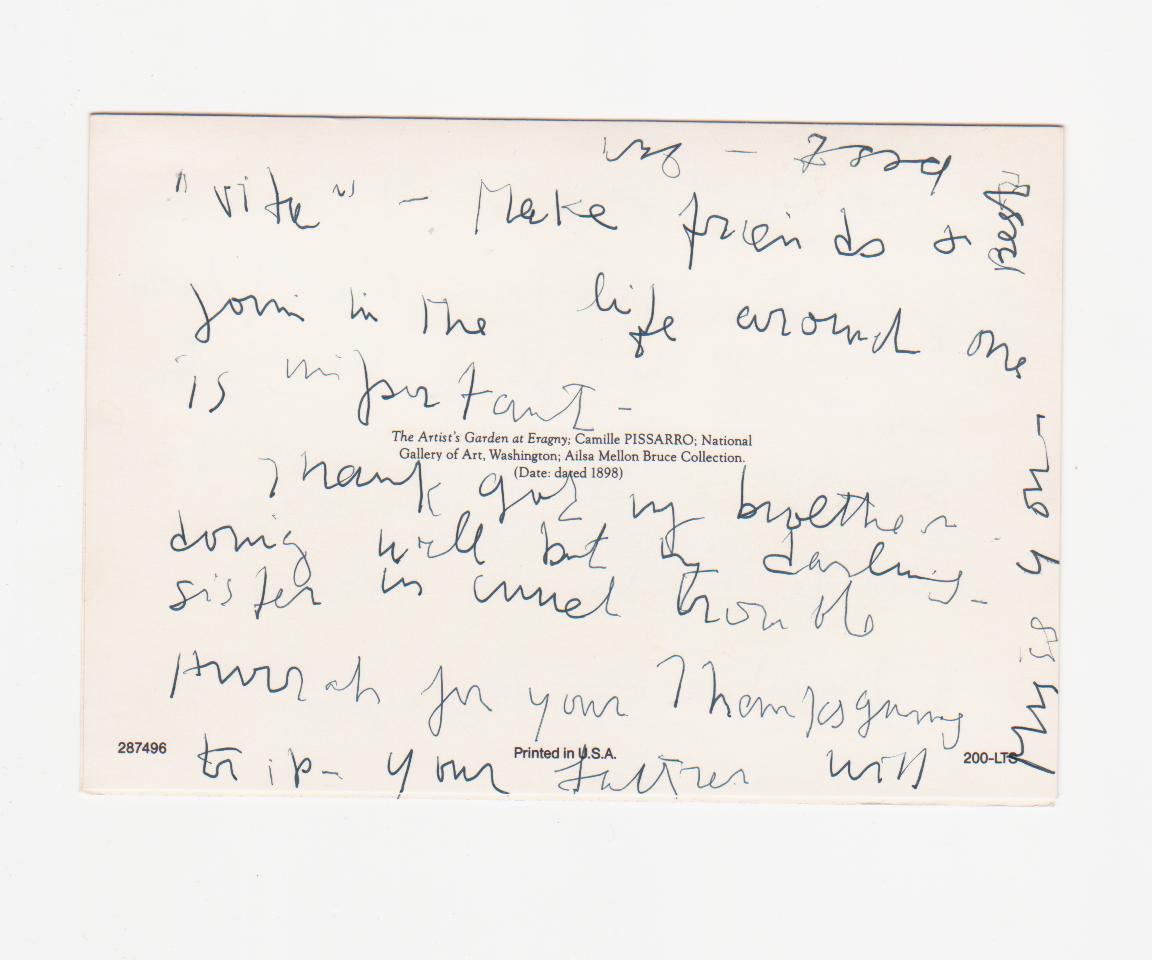 "vita" – Make friends &
join in the life around one
is important –
The Artist's Garden at Eragny; Camille PISSARRO; National
Gallery of Art, Washington; Ailsa Mellon Bruce Collection.
(Date: dated 1898)
Thank god my brother
doing well but my darling
sister in cruel trouble
Hurrah for your Thanksgiving
trip – your father will
287496
Printed in U.S.A.
200-LTS
miss you –
Best